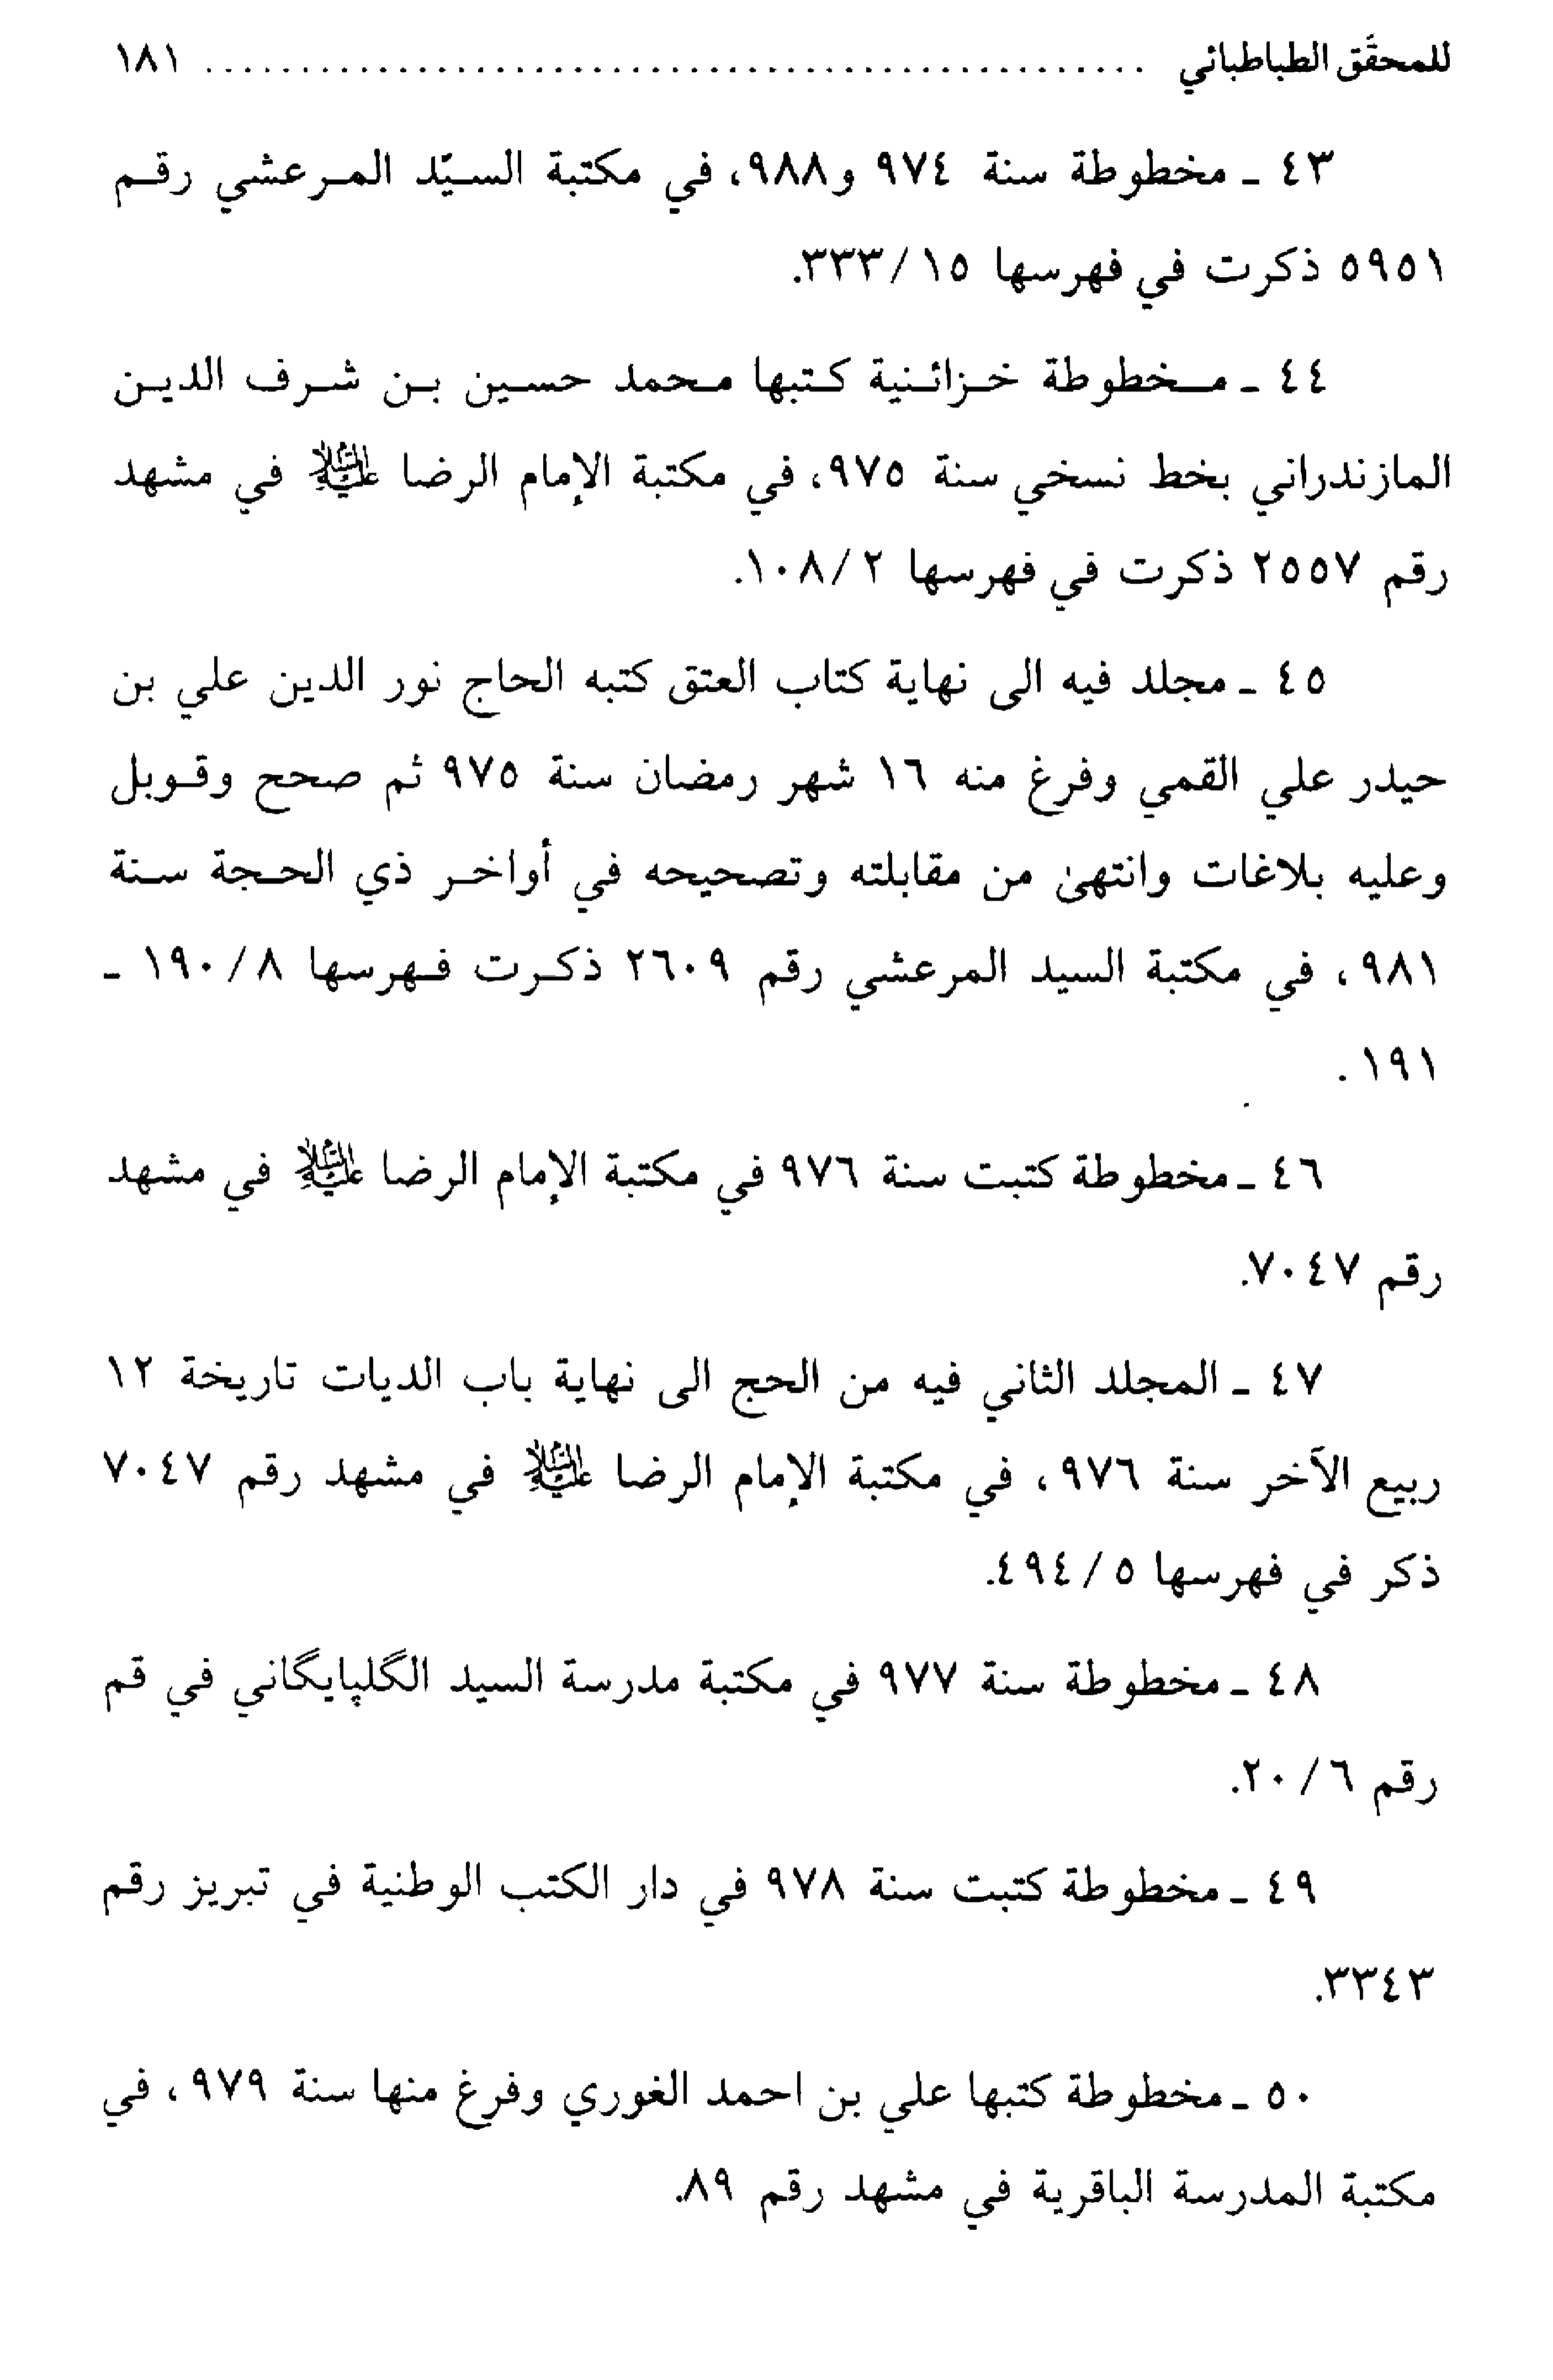 للمحقَّق الطباطبائي ................................................ ١٨١
٤٣ ـ مخطوطة سنة ٩٧٤ و٩٨٨، في مكتبة السيّد المرعشي رقم
٥٩٥١ ذكرت في فهرسها ١٥/٣٣٣.
٤٤ ـ مخطوطة خزائنية كتبها محمد حسين بن شرف الدين
المازندراني بخط نسخي سنة ٩٧٥، في مكتبة الإمام الرضا عليه السلام في مشهد
رقم ٢٥٥٧ ذكرت في فهرسها ٢/١٠٨.
٤٥ ـ مجلد فيه الى نهاية كتاب العتق كتبه الحاج نور الدين علي بن
حيدر علي القمي وفرغ منه ١٦ شهر رمضان سنة ٩٧٥ ثم صحح وقوبل
وعليه بلاغات وانتهىٰ من مقابلته وتصحيحه في أواخر ذي الحجة سنة
٩٨١، في مكتبة السيد المرعشي رقم ٢٦٠٩ ذكرت فهرسها ٨/١٩٠ ـ
١٩١.
٤٦ ـ مخطوطة كتبت سنة ٩٧٦ في مكتبة الإمام الرضا عليه السلام في مشهد
رقم ٧٠٤٧.
٤٧ ـ المجلد الثاني فيه من الحج الى نهاية باب الديات تاريخة ١٢
ربيع الآخر سنة ٩٧٦، في مكتبة الإمام الرضا عليه السلام في مشهد رقم ٧٠٤٧
ذكر في فهرسها ٥/٤٩٤.
٤٨ ـ مخطوطة سنة ٩٧٧ في مكتبة مدرسة السيد الگلپايگاني في قم
رقم ٦/٢٠.
٤٩ ـ مخطوطة كتبت سنة ٩٧٨ في دار الكتب الوطنية في تبريز رقم
٣٣٤٣.
٥٠ ـ مخطوطة كتبها علي بن احمد الغوري وفرغ منها سنة ٩٧٩، في
مكتبة المدرسة الباقرية في مشهد رقم ٨٩.